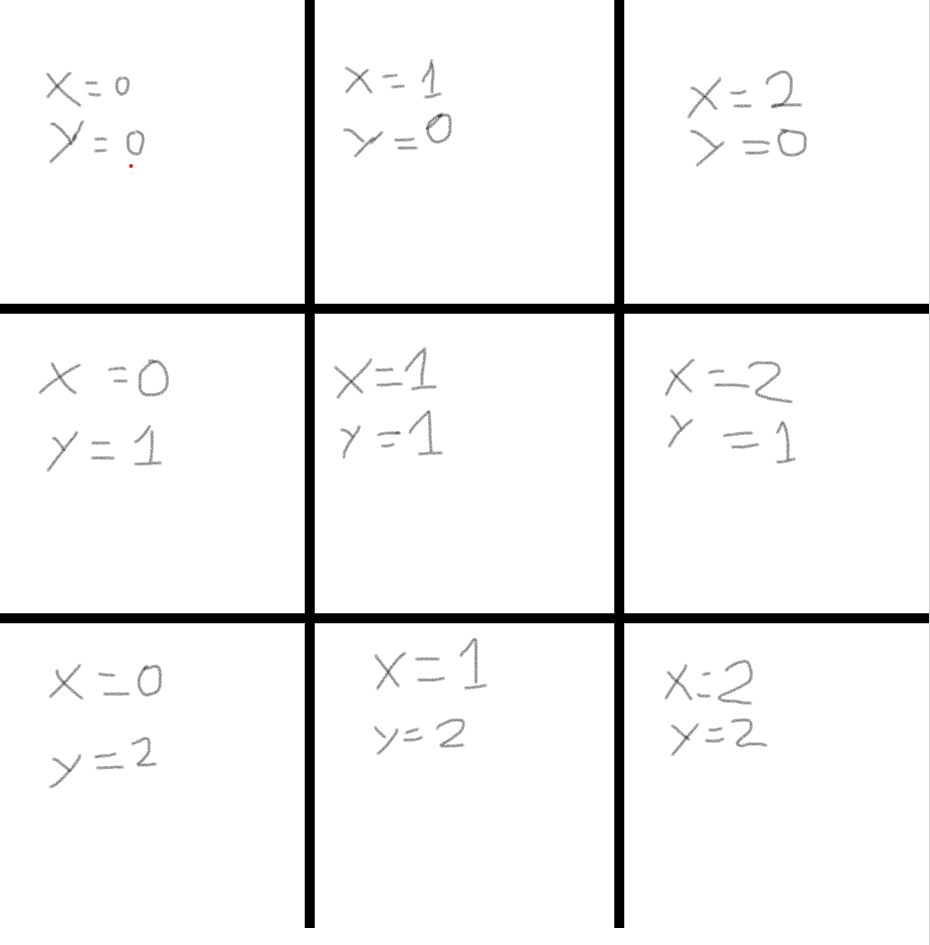 x=0
y=0
x=1
y=0
x=2
y=0
x=0
y=1
x=1
y=1
x=2
y=1
x=0
y=2
x=1
y=2
x=2
y=2